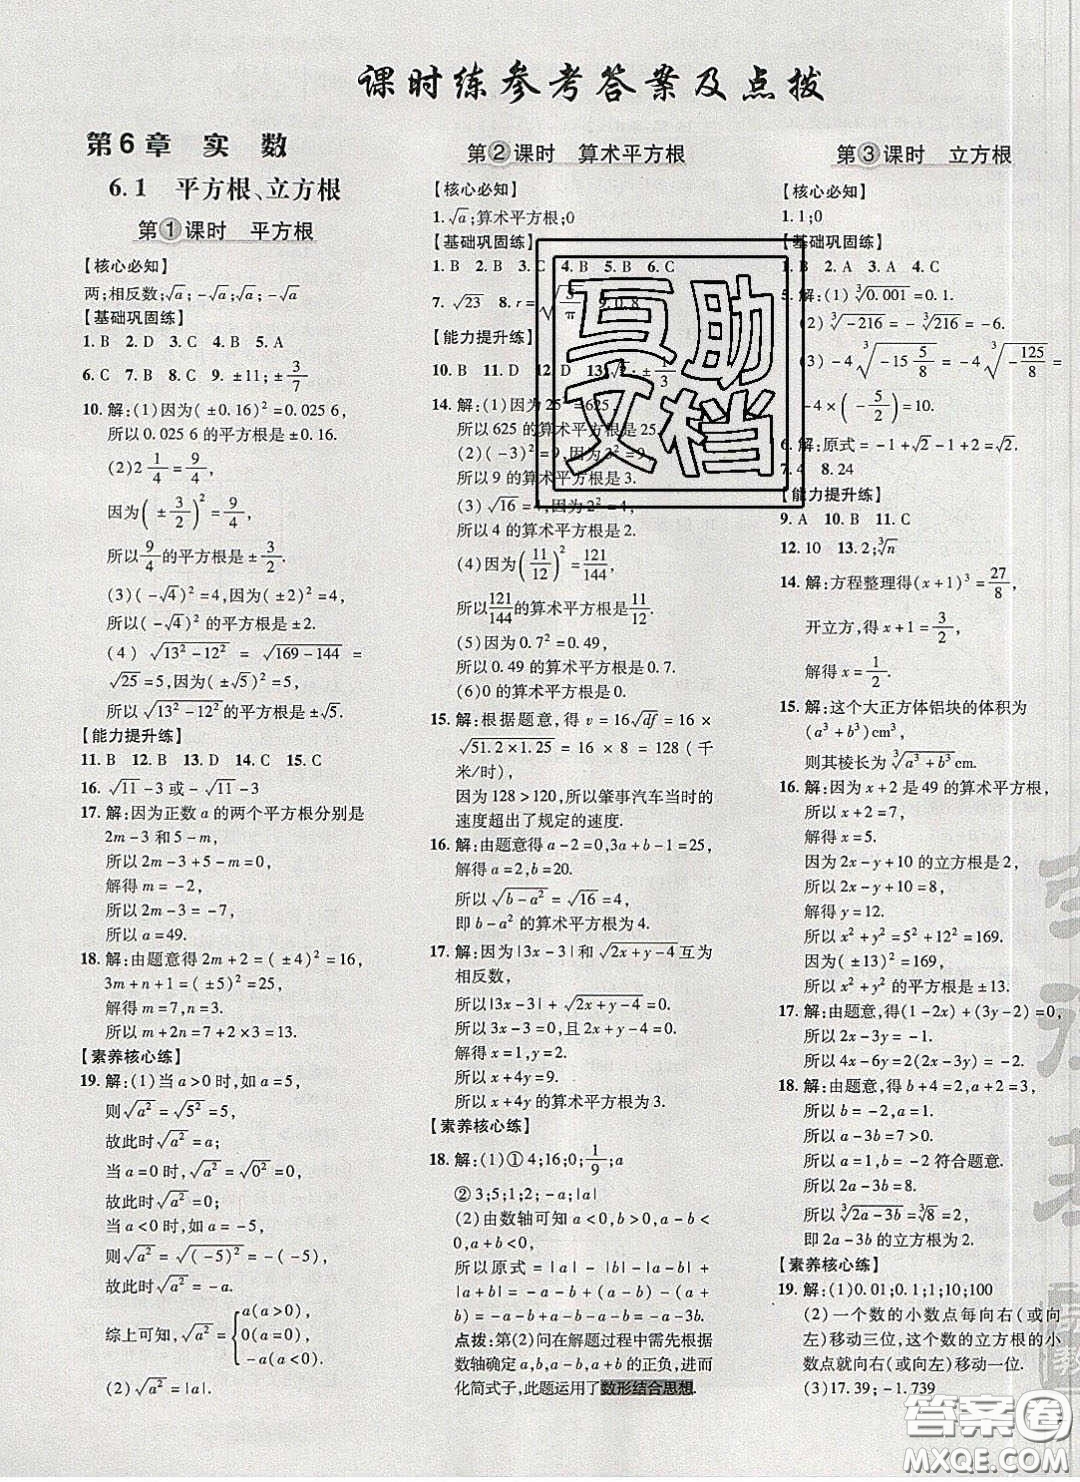 课时练参考答案及点拨
第6章 实 数
6.1 平方根、立方根
第①课时 平方根
【核心必知】
两;相反数;√a;-√a;√a;-√a
【基础巩固练】
1. B 2. D 3. C 4. B 5. A
6. C 7. B 8. C 9. ±11;±3/7
10. 解:(1)因为(±0.16)²=0.025 6,
所以0.025 6的平方根是±0.16.
(2)2 1/4=9/4,
因为(±3/2)²=9/4,
所以9/4的平方根是±3/2.
(3)(-√4)²=4,因为(±2)²=4,
所以(-√4)²的平方根是±2.
(4) √(13²-12²) = √(169-144) =
√25=5,因为(±√5)²=5,
所以√(13²-12²)的平方根是±√5.
【能力提升练】
11. B 12. B 13. D 14. C 15. C
16. √11-3或-√11-3
17. 解:因为正数a的两个平方根分别是
2m-3和5-m,
所以2m-3+5-m=0,
解得m=-2,
所以2m-3=-7,
所以a=49.
18. 解:由题意得2m+2=(±4)²=16,
3m+n+1=(±5)²=25,
解得m=7,n=3.
所以m+2n=7+2×3=13.
【素养核心练】
19. 解:(1)当a>0时,如a=5,
则√a²=√5²=5,
故此时√a²=a;
当a=0时,√a²=√0²=0,
故此时√a²=0;
当a<0时,如a=-5,
则√a²=√(-5)²=-(-5),
故此时√a²=-a.
综上可知,√a²={a(a>0),
0(a=0),
-a(a<0).
(2)√a²=|a|.
第②课时 算术平方根
【核心必知】
1. √a;算术平方根;0
【基础巩固练】
1. B 2. B 3. C 4. B 5. B 6. C
7. √23 8. r=√(3/π) 9. 0.8
【能力提升练】
10. B 11. D 12. D 13. √2;±1/3
14. 解:(1)因为25²=625,
所以625的算术平方根是25.
(2)(-3)²=9,因为3²=9,
所以9的算术平方根是3.
(3)√16=4,因为2²=4,
所以4的算术平方根是2.
(4)因为(11/12)²=121/144,
所以121/144的算术平方根是11/12.
(5)因为0.7²=0.49,
所以0.49的算术平方根是0.7.
(6)0的算术平方根是0.
15. 解:根据题意,得v=16√df=16×
√(51.2×1.25)=16×8=128(千
米/时),
因为128>120,所以肇事汽车当时的
速度超出了规定的速度.
16. 解:由题意得a-2=0,3a+b-1=25,
解得a=2,b=20,
所以√(b-a²)=√16=4,
即b-a²的算术平方根为4.
17. 解:因为|3x-3|和√(2x+y-4)互为
相反数,
所以|3x-3|+√(2x+y-4)=0.
所以3x-3=0,且2x+y-4=0.
解得x=1,y=2.
所以x+4y=9.
所以x+4y的算术平方根为3.
【素养核心练】
18. 解:(1)①4;16;0;1/9;a
②3;5;1;2;-a;|a|
(2)由数轴可知a<0,b>0,a-b<
0,
所以原式=|a|-|b|-|a-b|+
|a+b|=-a-b+a-b-a-b=-a-3b.
点拨:第(2)问在解题过程中需先根据
数轴确定a,b,a-b的正负,进而
化简式子,此题运用了数形结合思想.
第③课时 立方根
【核心必知】
1. 1;0
【基础巩固练】
1. B 2. A 3. A 4. C
5. 解:(1)∛0.001=0.1.
(2)∛-216=-∛216=-6.
(3)-4∛(-15 5/8)=-4∛(-125/8)=
-4×(-5/2)=10.
6. 解:原式=-1+√2-1+2=√2.
7. 4 8. 24
【能力提升练】
9. A 10. B 11. C
12. 10 13. 2;∛n
14. 解:方程整理得(x+1)³=27/8,
开立方,得x+1=3/2,
解得x=1/2.
15. 解:这个大正方体铝块的体积为
(a³+b³)cm³,
则其棱长为∛(a³+b³)cm.
16. 解:因为x+2是49的算术平方根,
所以x+2=7,
解得x=5.
因为2x-y+10的立方根是2,
所以2x-y+10=8,
解得y=12.
所以x²+y²=5²+12²=169.
因为(±13)²=169,
所以x²+y²的平方根是±13.
17. 解:由题意,得(1-2x)+(3y-2)=0,
所以2x-3y=-1.
所以4x-6y=2(2x-3y)=-2.
18. 解:由题意,得b+4=2,a+2=3,
所以b=-2,a=1.
所以a-3b=7>1.
所以a=1,b=-2符合题意.
所以2a-3b=8.
所以∛(2a-3b)=∛8=2,
即2a-3b的立方根为2.
【素养核心练】
19. 解:(1)0.01;0.1;1;10;100
(2)一个数的小数点每向右(或向
左)移动三位,这个数的立方根的小
数点就向右(或向左)移动一位.
(3)17.39;-1.739
互助
文档
答案圈
MXQE.COM